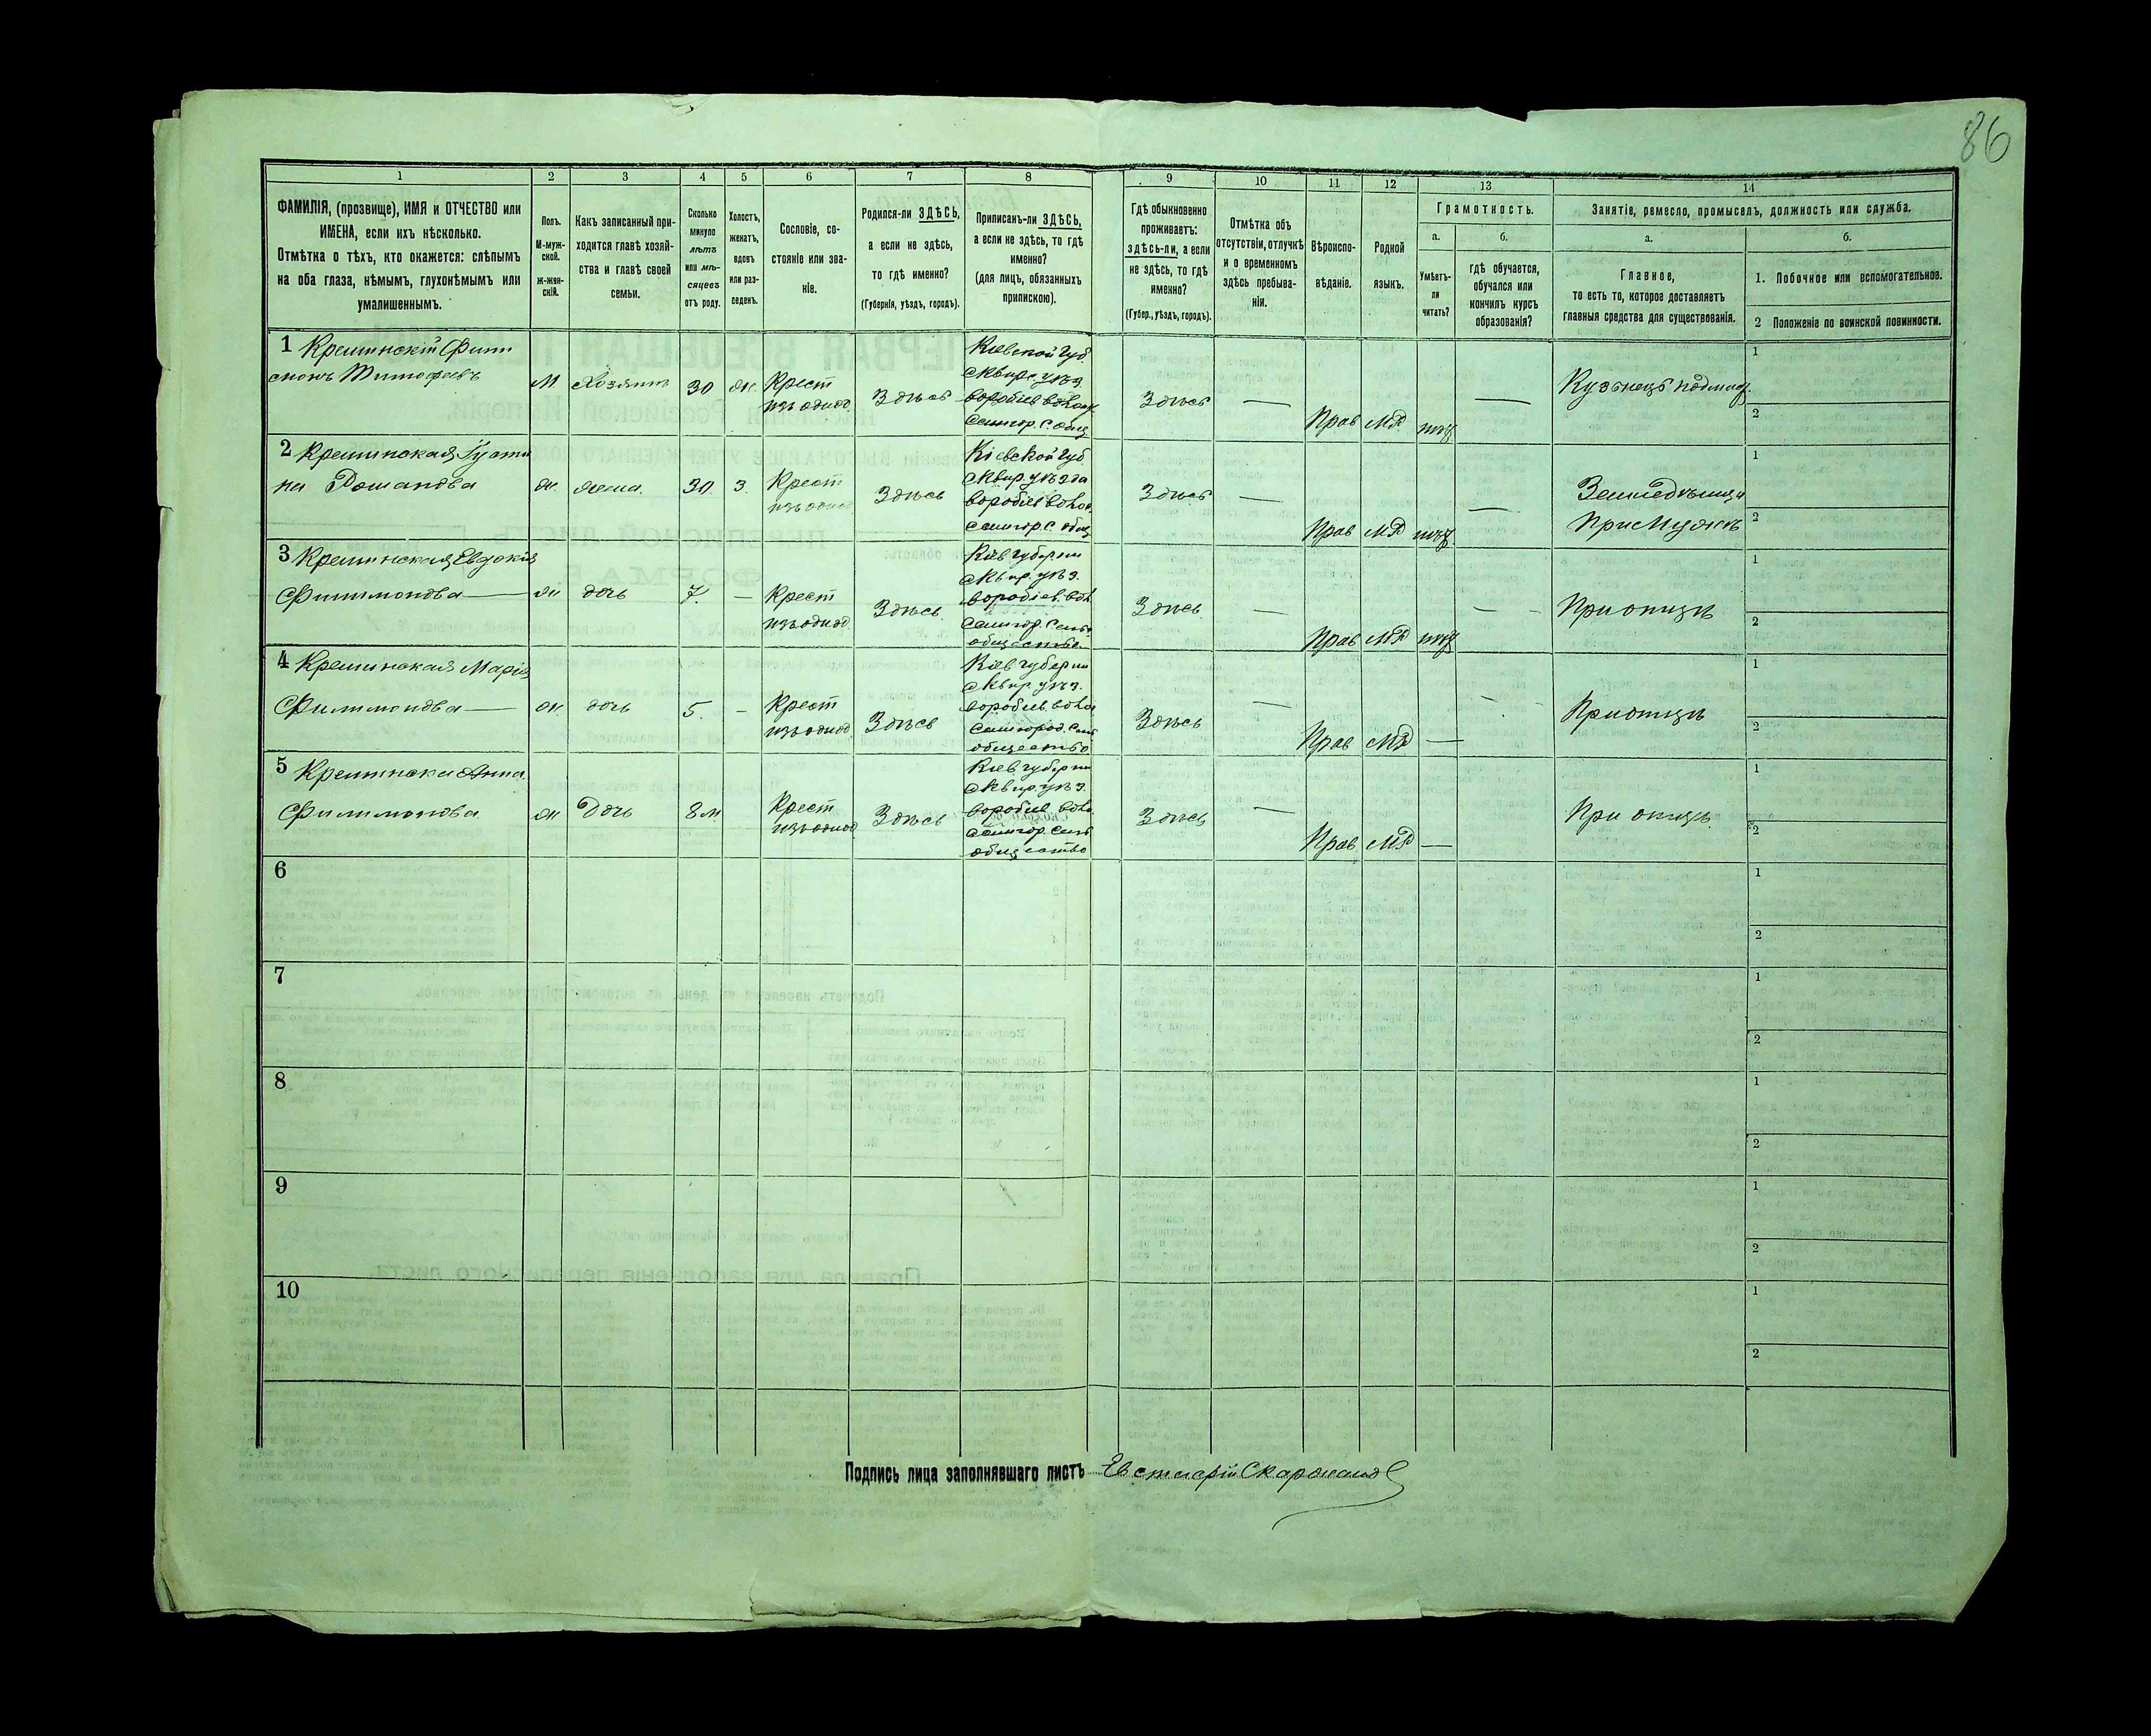 86
1
2
3
4
5
6
7
8
9
10
11
12
13
14
ФАМИЛІЯ, (прозвище), ИМЯ и ОТЧЕСТВО или
ИМЕНА, если ихъ нѣсколько.
Отмѣтка о тѣхъ, кто окажется: слѣпымъ
на оба глаза, нѣмымъ, глухонѣмымъ или
умалишеннымъ.
Полъ.
М-муж-
ской.
ж-жен-
скій.
Какъ записанный при-
ходится главѣ хозяй-
ства и главѣ своей
семьи.
Сколько
минуло
лѣтъ
или мѣ-
сяцевъ
отъ роду.
Холостъ,
женатъ,
вдовъ
или раз-
веденъ.
Сословіе, со-
стояніе или зва-
ніе.
Родился-ли ЗДѢСЬ,
а если не здѣсь,
то гдѣ именно?
(Губернія, уѣздъ, городъ).
Приписанъ-ли ЗДѢСЬ,
а если не здѣсь, то гдѣ
именно?
(для лицъ, обязанныхъ
припискою).
Гдѣ обыкновенно
проживаетъ:
здѣсь-ли, а если
не здѣсь, то гдѣ
именно?
(Губер., уѣздъ, городъ).
Отмѣтка объ
отсутствіи, отлучкѣ
и о временномъ
здѣсь пребыва-
ніи.
Вѣроиспо-
вѣданіе.
Родной
языкъ.
Грамотность.
а.
Умѣетъ-
ли
читать?
б.
гдѣ обучается,
обучался или
кончилъ курсъ
образованія?
Занятіе, ремесло, промыселъ, должность или служба.
а.
Главное,
то есть то, которое доставляетъ
главныя средства для существованія.
б.
1. Побочное или вспомогательное.
2 Положеніе по воинской повинности.
1 Креминскій Фили
монъ Тимофеевъ
М Хозяинъ 30 ж. Крест
изъ однод.
Здѣсь
Кіевской губ.
Сквир. уѣз.
Здѣсь — Прав МР нѣт —
Кузнецъ
1
2
2 Креминская
на Романова
ж. жена. 30 з. Крест
изъ однод
Здѣсь
Кіевской губ
Сквир. уѣзда
Здѣсь — Прав МР нѣт —
При Мужѣ
1
2
3 Креминская Евдокія
Филимонова —
ж дочь 7. — Крест
изъ однод.
Здѣсь.
Кіев. губерни
Сквир. уѣз.
общество
Здѣсь — Прав МР нѣт —
При отцѣ
1
2
4 Креминская Марія
Филимонова —
ж. дочь 5. — Крест
изъ однод.
Здѣсь
Кіев губерни
Сквир уѣз.
общество
Здѣсь — Прав МР —
При отцѣ
1
2
5 Креминска Анна
Филимонова
ж Дочь 8 м. Крест
изъ однод
Здѣсь
Кіев. губерни
Сквир. уѣз.
общество
Здѣсь — Прав МР —
При отцѣ.
1
2
6
1
2
7
1
2
8
1
2
9
1
2
10
1
2
Подпись лица заполнявшаго листъ